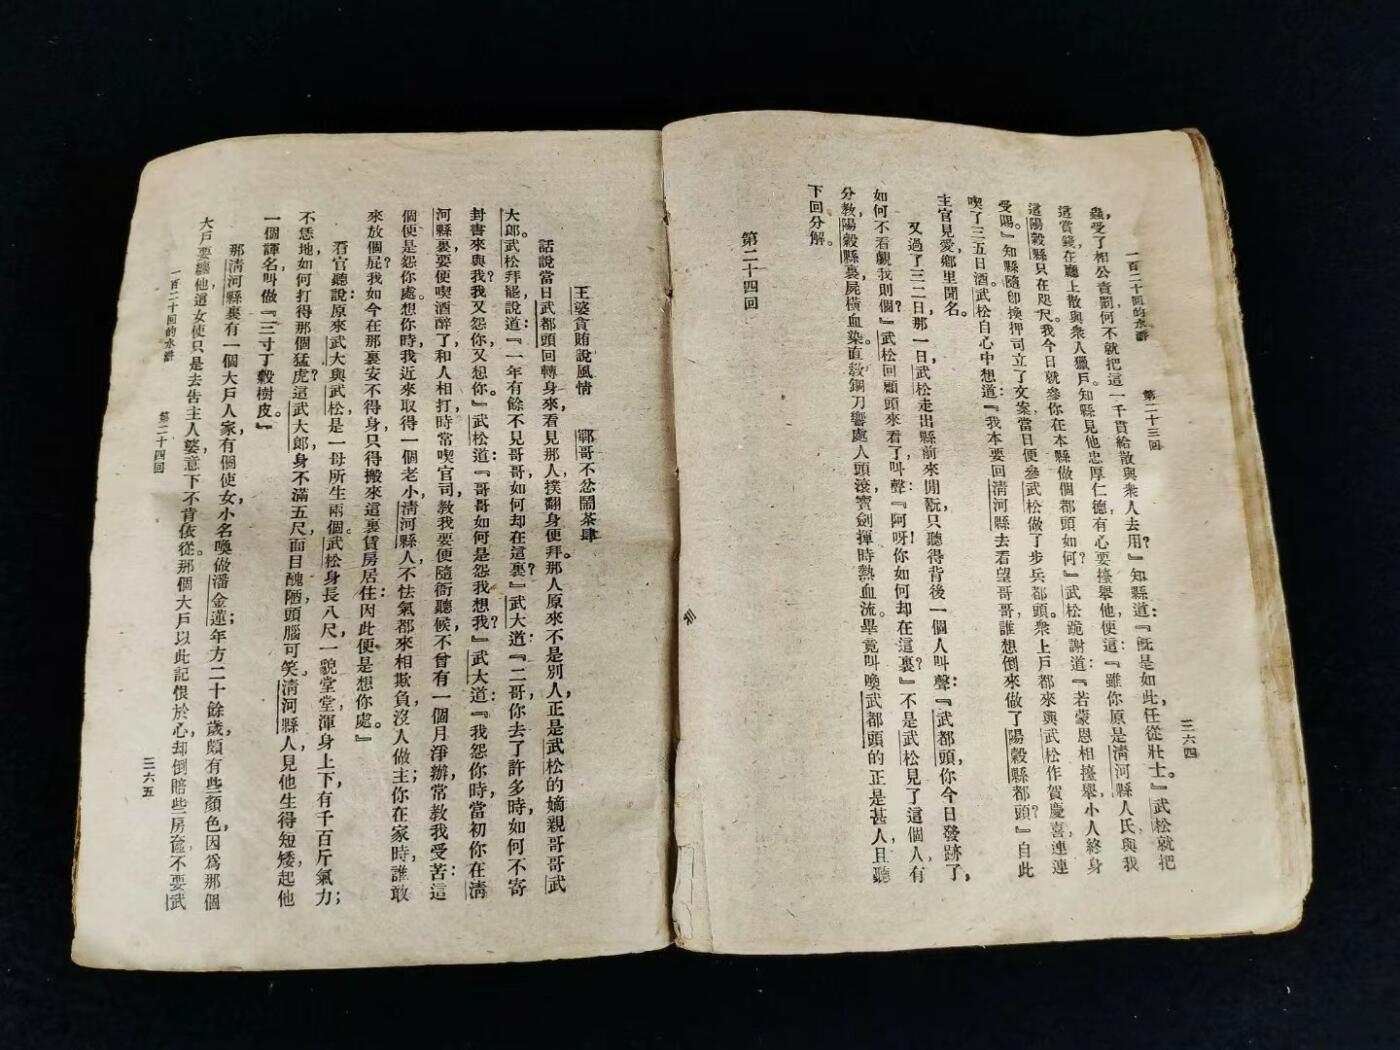 一百二十回的水滸　第二十三回　三六四
蟲，受了相公責罰，何不就把這一千貫給散與衆人去用？』知縣道：『旣是如此，任從壯士。』武松就把
這賞錢在廳上散與衆人獵戶。知縣見他忠厚仁德，有心要擡舉他，便道：『雖你原是淸河縣人氏，與我
這陽穀縣只在咫尺。我今日就參你在本縣做個都頭，如何？』武松跪謝道：『若蒙恩相擡舉，小人終身
受賜。』知縣隨卽換押司立了文案，當日便參武松做了步兵都頭。衆上戶都來與武松作賀慶喜，連連
喫了三五日酒。武松自心中想道：『我本要回淸河縣去看望哥哥，誰想倒來做了陽穀縣都頭？』自此
主官見愛，鄉里聞名。
又過了三二日，那一日，武松走出縣前來閒翫，只聽得背後一個人叫聲：『武都頭，你今日發跡了，
如何不看覷我則個？』武松回頭來看了，叫聲『阿呀！你如何却在這裏？』不是武松見了這個人，有
分敎陽穀縣裏，屍橫血染。直敎鋼刀響處人頭滾，寶劍揮時熱血流。畢竟叫喚武都頭的正是甚人，且聽
下回分解。
第二十四回
王婆貪賄說風情　鄆哥不忿鬧茶肆
話說當日武都頭回轉身來看見那人，撲翻身便拜。那人原來不是別人，正是武松的嫡親哥哥武
大郎。武松拜罷，說道：『一年有餘不見哥哥，如何却在這裏？』武大道：『二哥，你去了許多時，如何不寄
封書來與我？我又怨你，又想你。』武松道：『哥哥如何是怨我想我？』武大道：『我怨你時，當初你在淸
河縣裏，要便喫酒醉了，和人相打，時常喫官司，敎我要便隨衙聽候，不曾有一個月淨辦，常敎我受苦：這
個便是怨你處。想你時，我近來取得一個老小，淸河縣人不怯氣，都來相欺負，沒人做主；你在家時，誰敢
來放個屁？我如今在那裏安不得身，只得搬來這裏賃房居住：因此便是想你處。』
看官聽說：原來武大與武松是一母所生兩個。武松身長八尺，一貌堂堂，渾身上下，有千百斤氣力；
不恁地，如何打得那個猛虎？這武大郎，身不滿五尺，面目醜陋，頭腦可笑。淸河縣人見他生得短矮，起他
一個諢名，叫做『三寸丁穀樹皮。』
那淸河縣裏有一個大戶人家，有個使女，小名喚做潘金蓮；年方二十餘歲，頗有些顏色。因爲那個
大戶要纏他，這女使只是去告主人婆，意下不肯依從。那個大戶以此記恨於心，却倒賠些房奩，不要武
一百二十回的水滸　第二十四回　三六五